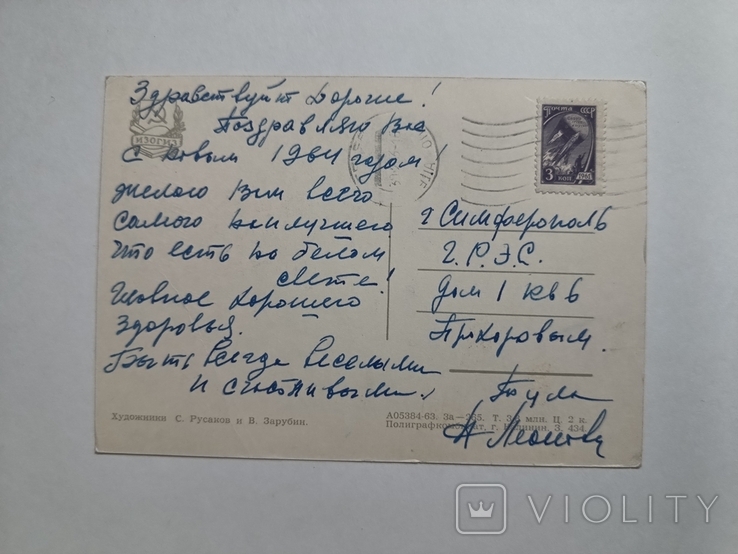 Здравствуйте дорогие!
Поздравляю Вас
с новым 1964 годом!
желаю Вам всего
самого наилучшего
что есть на белом
свете!
Главное хорошего
здоровья.
Быть всегда веселыми
и счастливыми!
ИЗОГИЗ
Художники С. Русаков и В. Зарубин.
ПОЧТА СССР
3 КОП
1961
г Симферополь
Г.Р.Э.С.
дом 1 кв 6
Прохоровым.
Тула
А05364-63. За—285. Т. млн. Ц. 2 к.
Полиграфкомбинат, г. Калинин, З. 434.
VIOLITY